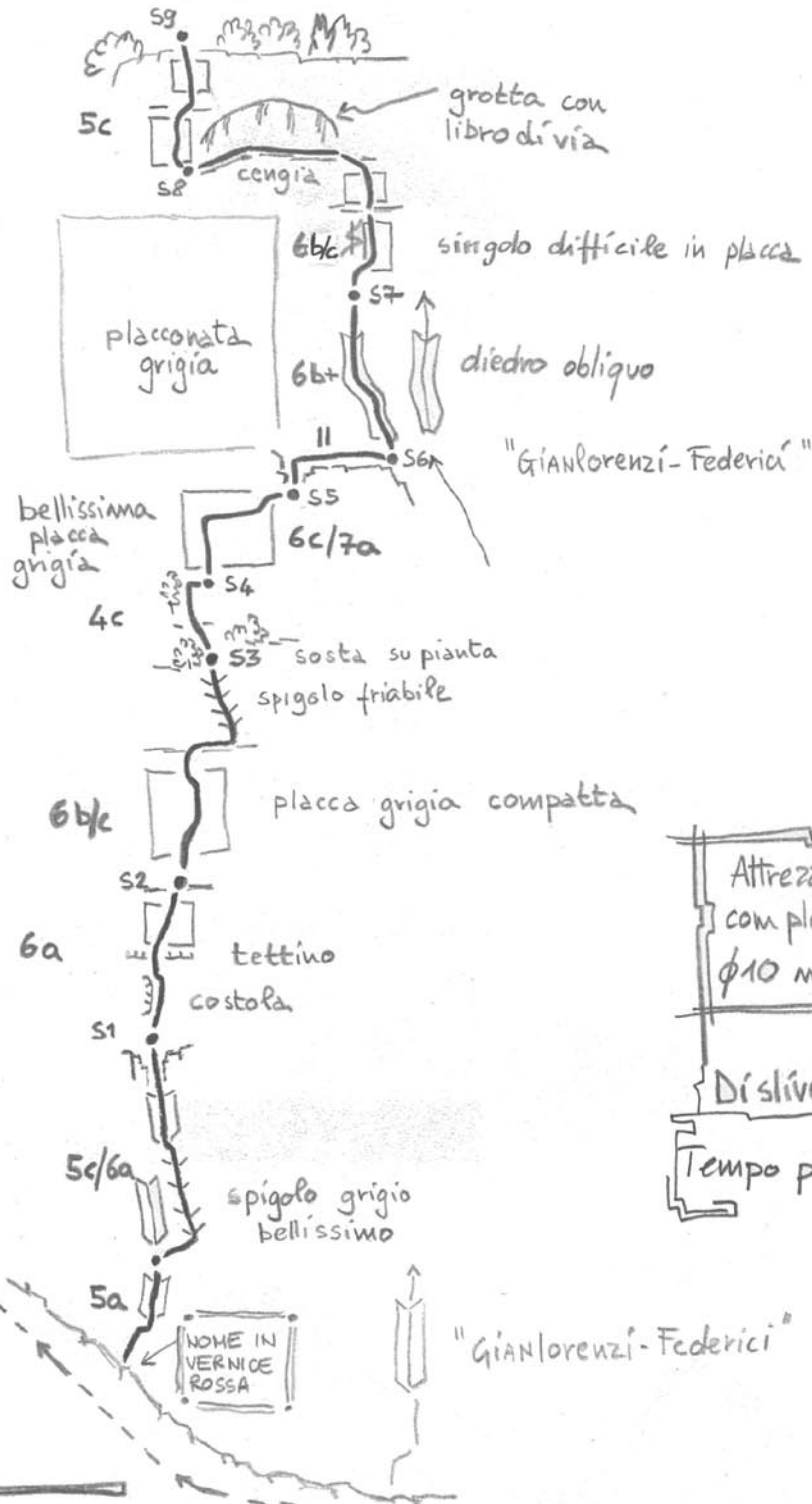 S9
grotta con
libro di via
5c
S8
cengia
6b/c
singolo difficile in placca
S7
placconata
grigia
6b+
diedro obliquo
II
S6
"GIANlorenzi-Federici"
S5
bellissima
placca
grigia
6c/7a
S4
4c
S3
sosta su pianta
spigolo friabile
6b/c
placca grigia compatta
S2
6a
tettino
costola
S1
com
φ10
5c/6a
spigolo grigio
bellissimo
Tempo
5a
NOME IN
VERNICE
ROSSA
"GIANlorenzi-Federici"